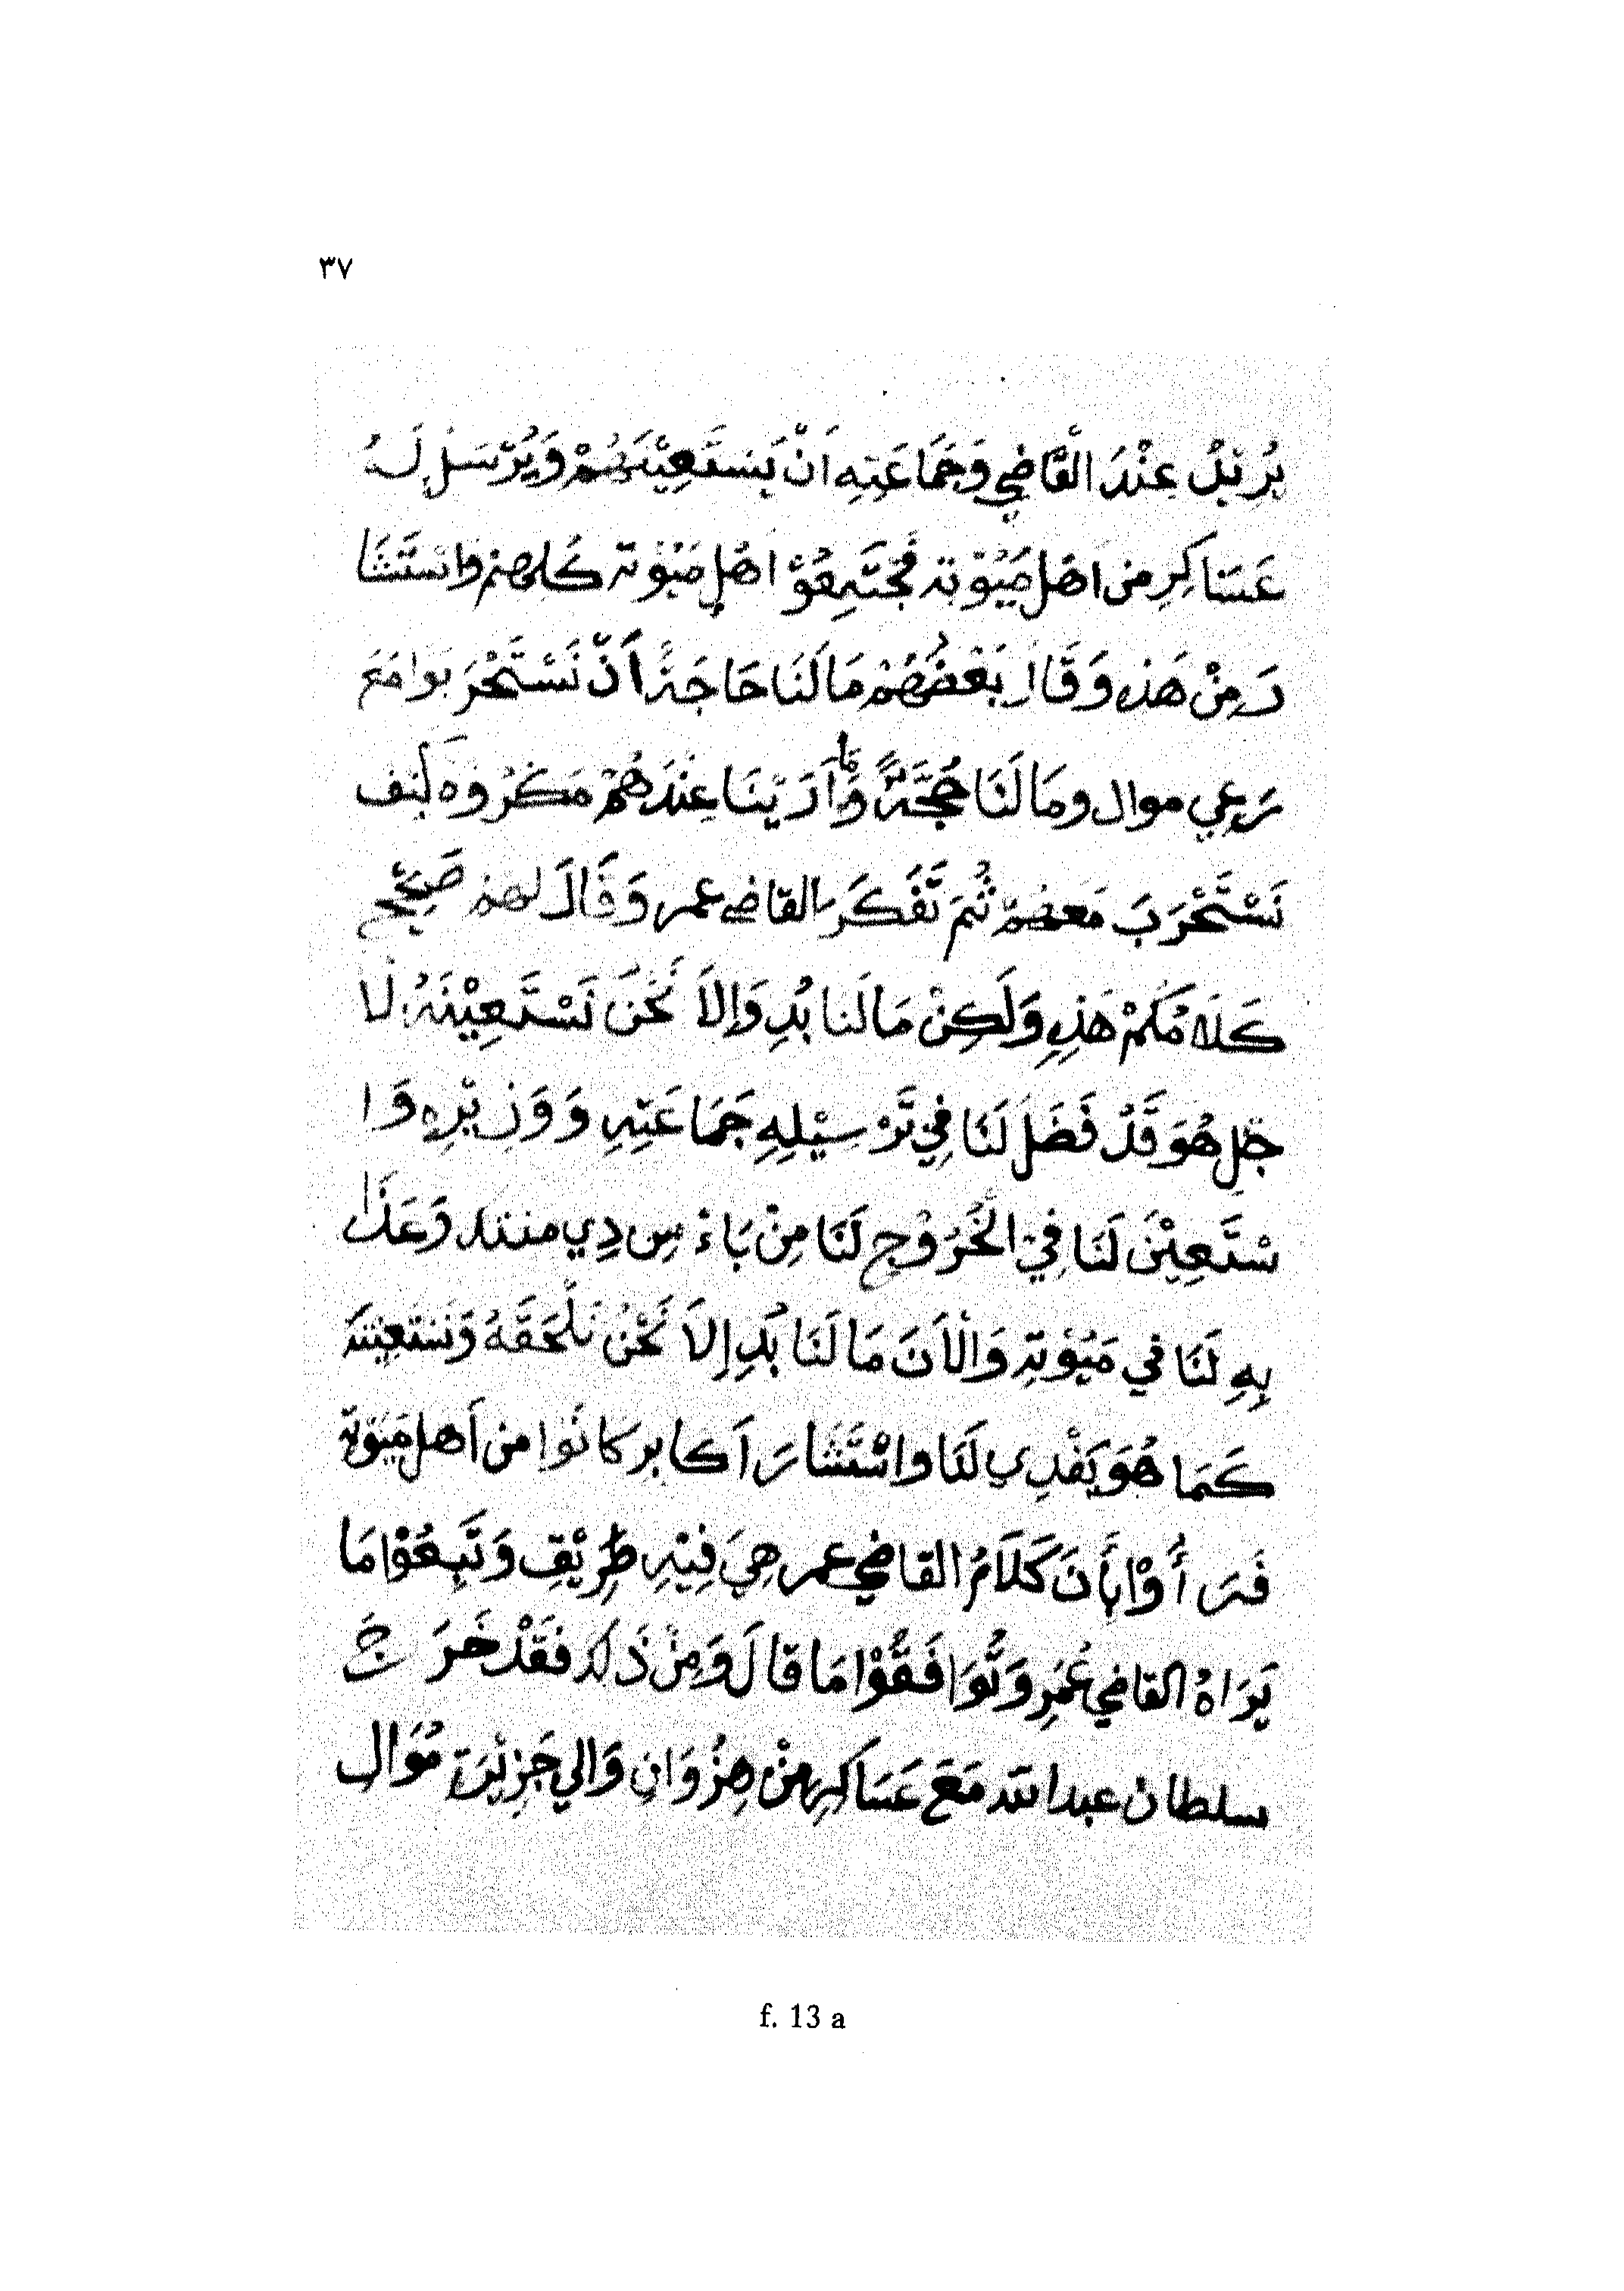 ٣٧
يُرِيْدُ عِنْدَ الْقَاضِي وَجَمَاعَتِهِ اَنْ يَسْتَعِيْنَهُمْ وَيُرْسَلِ لَهُ
عَسَاكِرِ مِن اهْلِ مَيُوْتِه فَجْتَمِعُوْ اهْلِ مَيُوتَة كلهم وَاسْتَشَا
رَ مِنْ هَذِهِ وَقَالَ بَعْضُهُمْ مَا لَنَا حَاجَةً أَنْ نَسْتَحْرَبُوا مَعَ
رَعِي موال ومَا لَنَا حُجَّةً وَمَا اَرَيْنَا عِنْدَهُمْ مَكْرُوْه كَيْف
نَسْتَحْرَبَ مَعَهُمْ ثُمَ تَّفَكَّرَ القاضي عمر وَقَالَ لهم صَحِيْح
كَلَامُكُمْ هَذِهِ وَلَكِنْ مَا لَنا بُدِ وَإِلاَ نَحْنَ نَسْتَعِيْنَهُ لَا
جْلِ هُوَ قَدْ فَضَلَ لَنَا فِيْ تَرْسِيْلِهِ جَمَاعَتِهِ وَوَزِيْرِهِ وَا
سْتَعِيْنَ لَنَا فِيْ الْخَرُوْجِ لَنَا مِنْ بَاءْ سِ دِي منتد وَعَذَا
بِهِ لَنَا في مَيُوْتِهِ وَالْاَنَ مَا لَنَا بُدِ إِلاَ نَحْنُ نَلْحَقَهُ وَنَسْتَعِيْنَهُ
كَمَا هُوَ يَفْدِي لَنَا وَاسْتَشَارَ اَكَابر كَانُوا من أَهل مَيُوْتِة
فَرَأُوْا بِأَنَ كَلَامُ القاضي عمر هِيَ فِيْهِ طَرِيْقِ وَتَّبِعُوْا مَا
يَرَاهُ القاضي عُمَرِ وَتَّوَافَقُوْا مَا قالَ وَمِنْ ذَلِكَ فَقَدْ خَرَجَ
سلطان عبد الله مَعَ عَسَاكِرِ مِنْ هِنْزُوَانِ وَالِي جَزِيْرَةِ مُوَالِ
f. 13 a